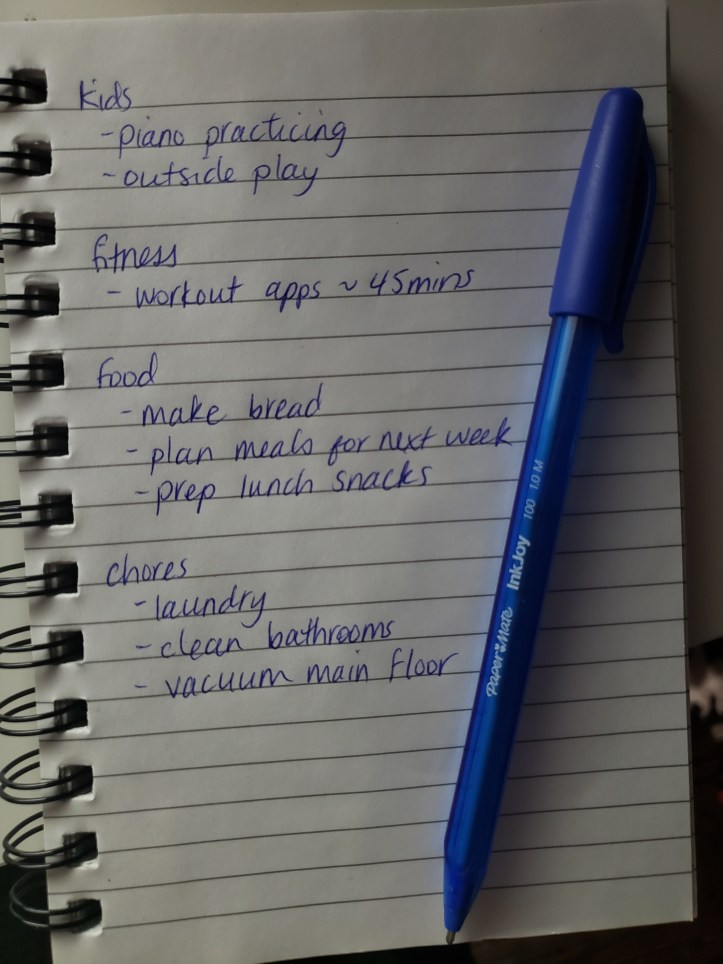 kids
- piano practicing
- outside play
fitness
- workout apps ~ 45mins
food
- make bread
- plan meals for next week
- prep lunch snacks
chores
- laundry
- clean bathrooms
- vacuum main floor
Paper Mate InkJoy 100 1.0 M